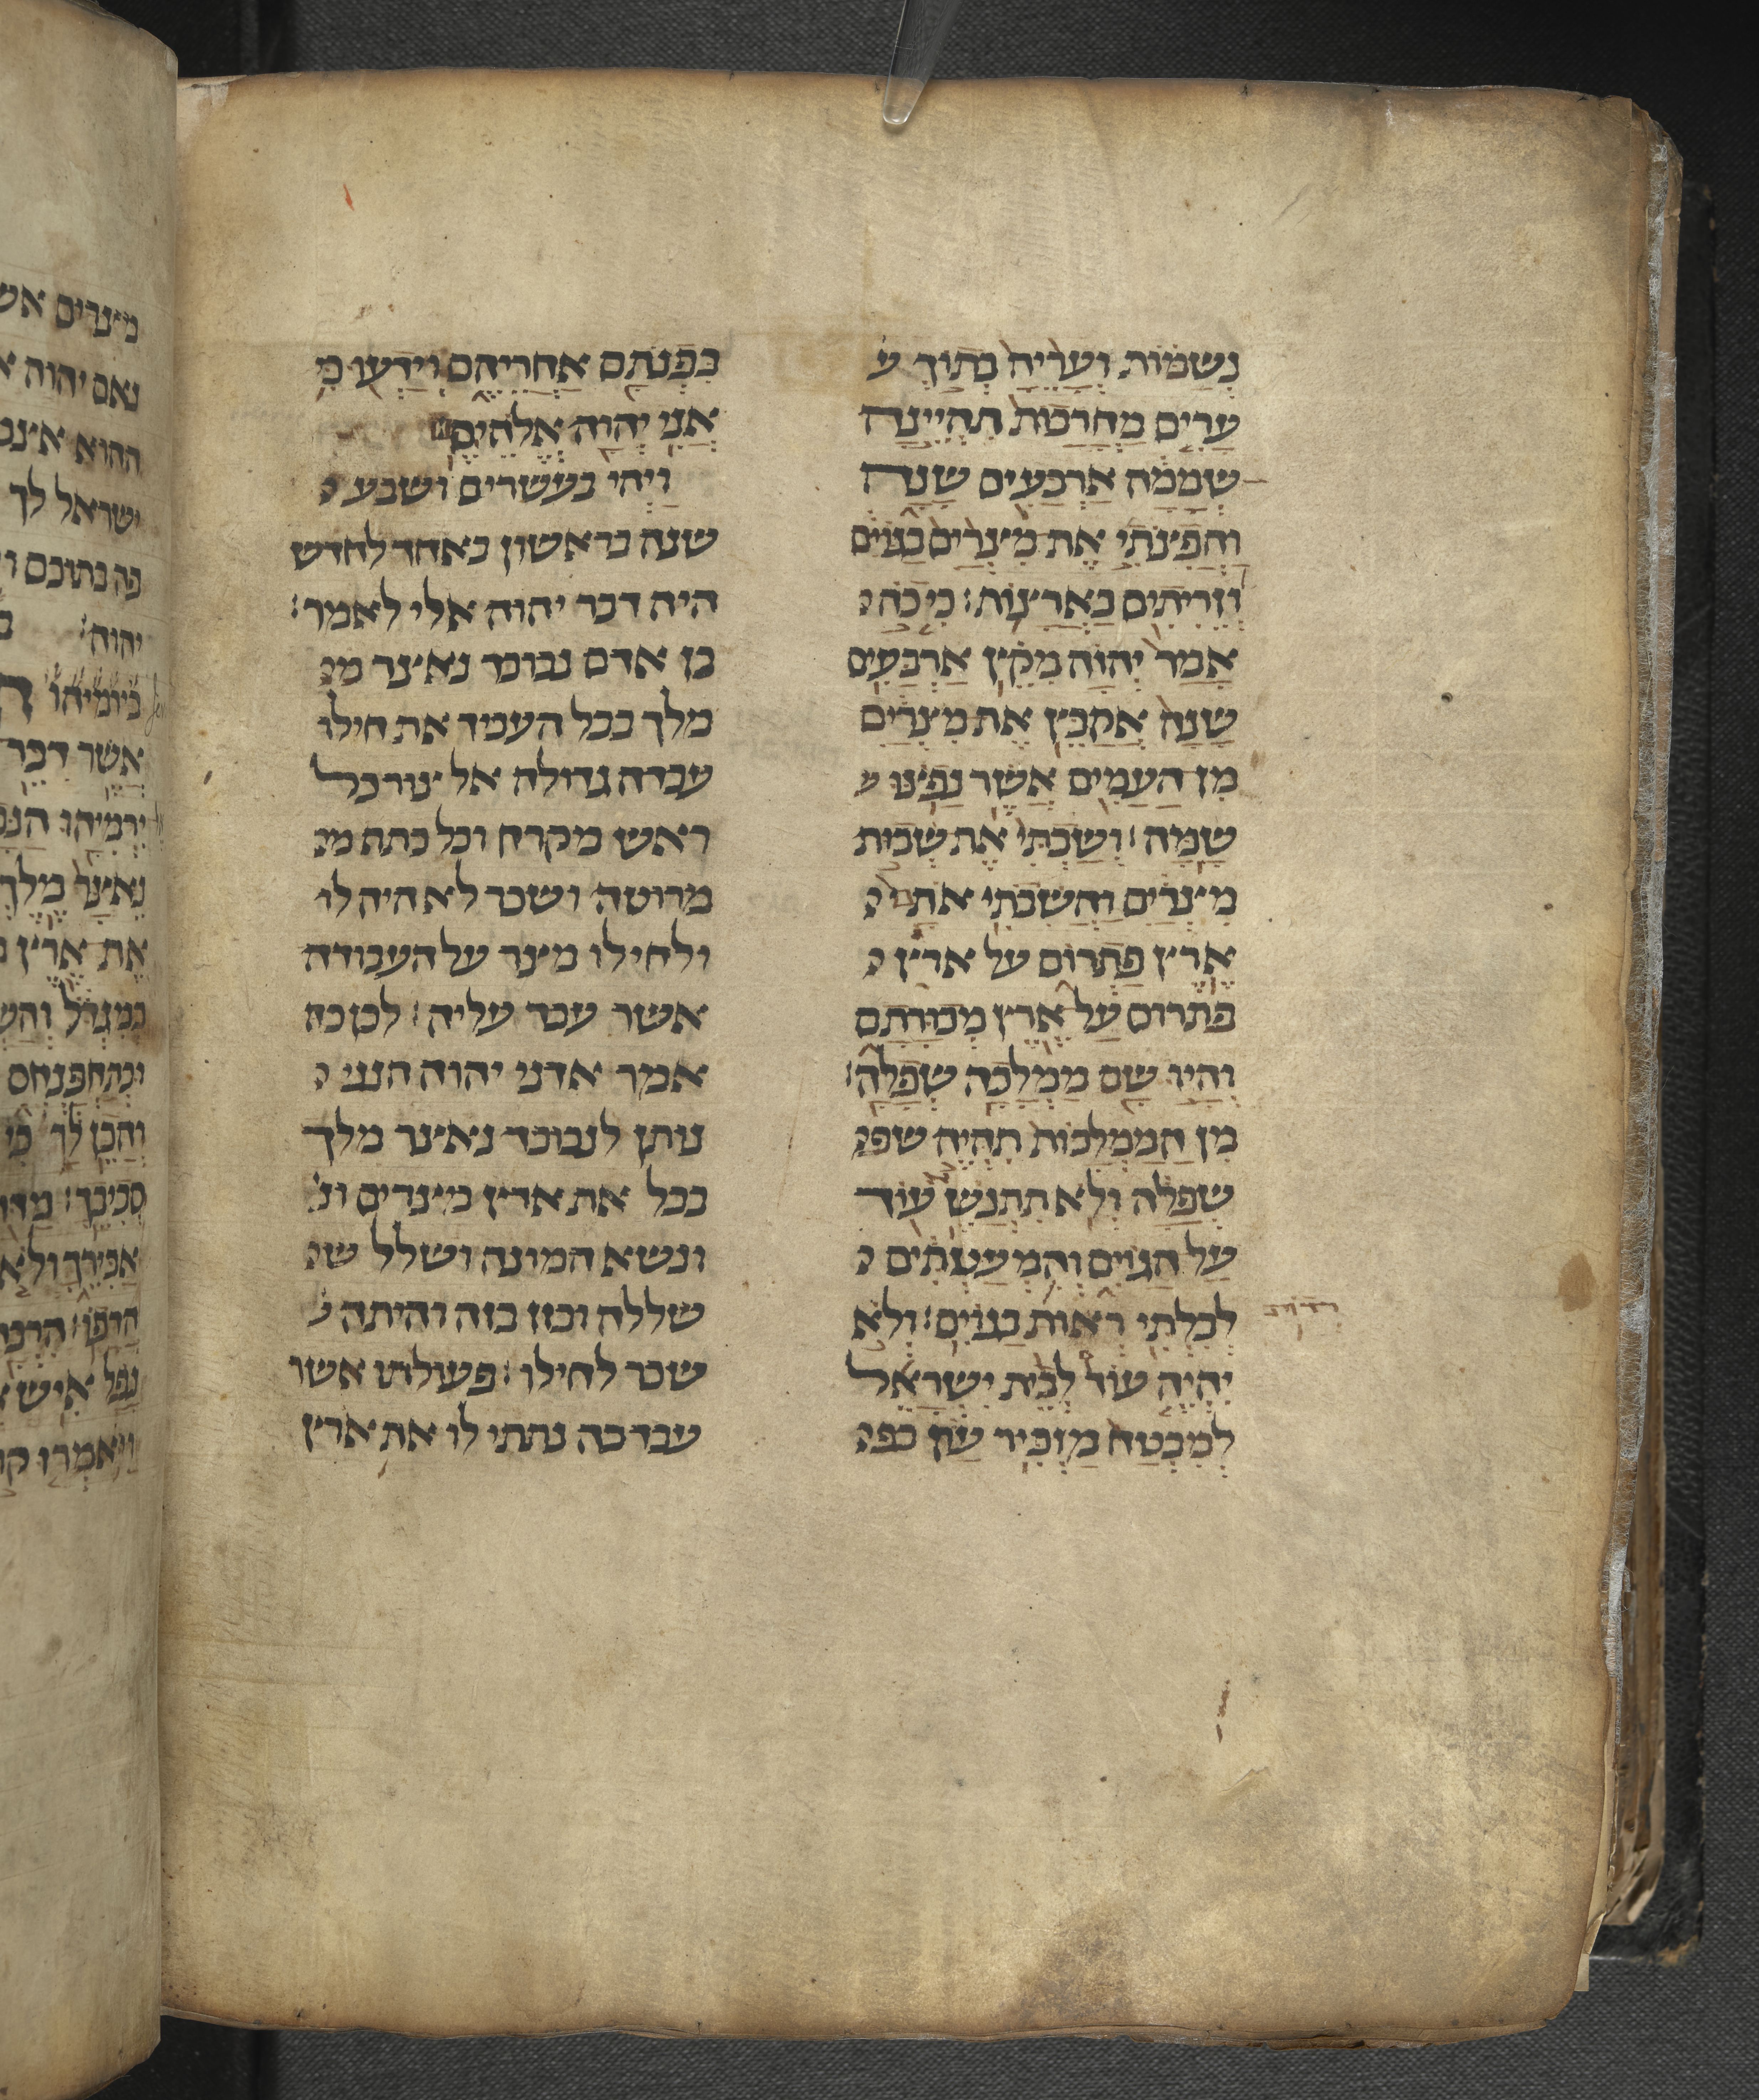 נשמות ועריה בתוך ע
ערים מחרבות תהיינה
שממה ארבעים שנה
והפיצתי את מצרים בגוים
וזריתים בארצות׃ כי כה
אמר יהוה מקץ ארבעים
שנה אקבץ את מצרים
מן העמים אשר נפצו ש
שמה׃ ושבתי את שבות
מצרים והשבתי אתם
ארץ פתרום על ארץ
פתרום על ארץ מכורתם
והיו שם ממלכה שפלה׃
מן הממלכות תהיה שפ
שפלה ולא תתנשא עוד
על הגוים והמעטתים
לבלתי ראות בגוים׃ ולא
יהיה עוד לבית ישראל
למבטח מזכיר עון בפ
בפנתם אחריהם וידעו כ
אני יהוה אלהים
ויהי בעשרים ושבע
שנה בראשון באחד לחדש
היה דבר יהוה אלי לאמר׃
בן אדם נבוכד נאצר מ
מלך בבל העביד את חילו
עבדה גדולה אל צור כל
ראש מקרח וכל כתף מ
מרוטה ושכר לא היה לו
ולחילו מצר על העבודה
אשר עבד עליה׃ לכן כה
אמר אדני יהוה הנני
נותן לנבוכד נאצר מלך
בבל את ארץ מצרים ונ
ונשא המונה ושלל ש
שללה ובזז בזה והיתה
שכר לחילו׃ פעולתו אשר
עבד בה נתתי לו את ארץ
מצרים אש
נאם יהוה
ההוא אצמ
ישראל לך
פה בתוכם
יהוה׃
אשר דבר
ירמיהו הנב
נאצר מלך
את ארץ
במגדל והש
ובתחפנחס
והכן לך כי
סביבך׃
אביריך ולא
נפל איש
ויאמרו קו